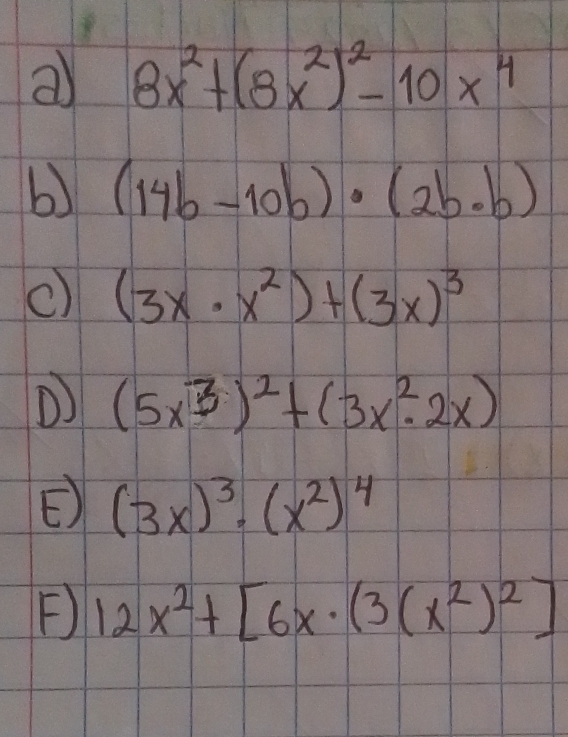 a) 8x²+(8x²)²-10x⁴
b) (14b-10b)·(2b·b)
c) (3x·x²)+(3x)³
D) (5x³)²+(3x²·2x)
E) (3x)³·(x²)⁴
F) 12x²+[6x·(3(x²)²]